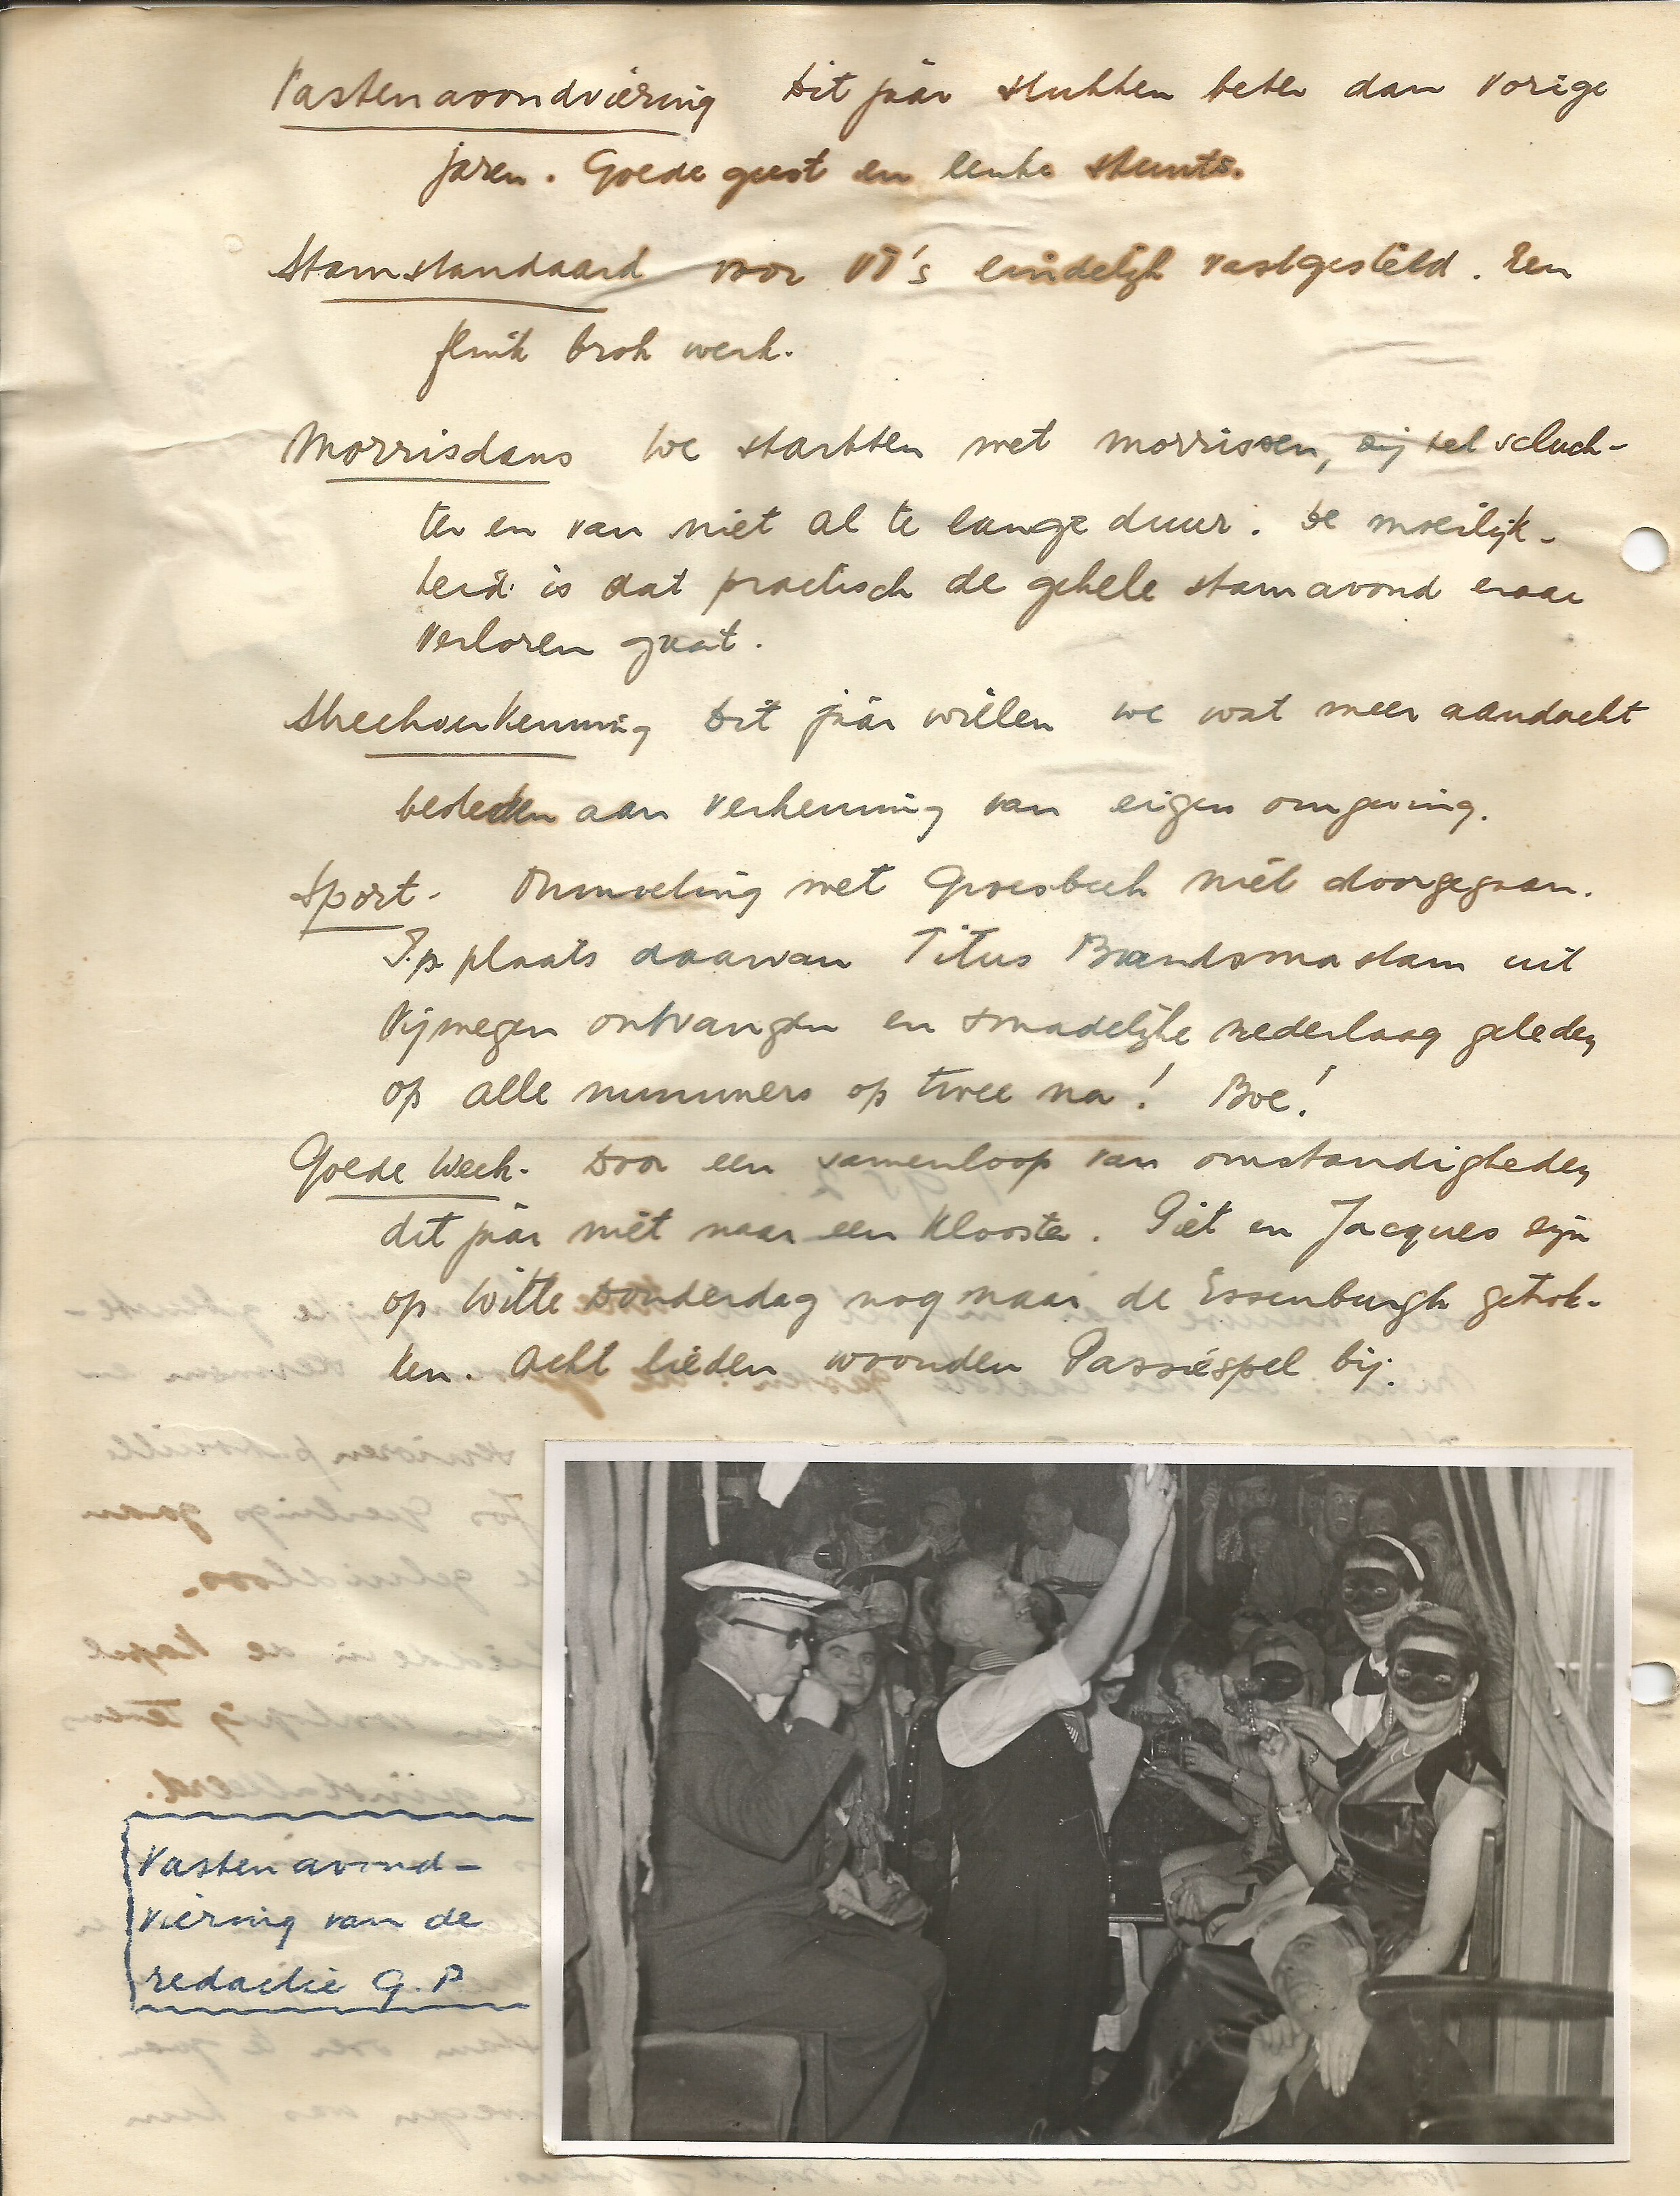 Vastenavondviering Dit jaar stukken beter dan vorige
jaren. Goede geest en leuke stunts.
Stamstandaard voor VT's eindelijk vastgesteld. Een
flink brok werk.
Morrisdans We startten met morrissen, zij het schuch-
ter en van niet al te lange duur. De moeilijk-
heid is dat practisch de gehele stamavond eraan
verloren gaat.
Streekverkenning Dit jaar willen we wat meer aandacht
besteden aan verkenning van eigen omgeving.
Sport. Ommoeting met Groesbeek niet doorgegaan.
I.p. plaats daarvan Titus Brandsma stam uit
Nijmegen ontvangen en smadelijke nederlaag geleden
op alle nummers op twee na! Boe!
Goede Week. Door een samenloop van omstandigheden
dit jaar niet naar een klooster. Piet en Jacques zijn
op Witte Donderdag nog naar de Essenburgh getrok-
ken. Acht lieden woonden Passiespel bij.
Vastenavond-
viering van de
redactie G.P